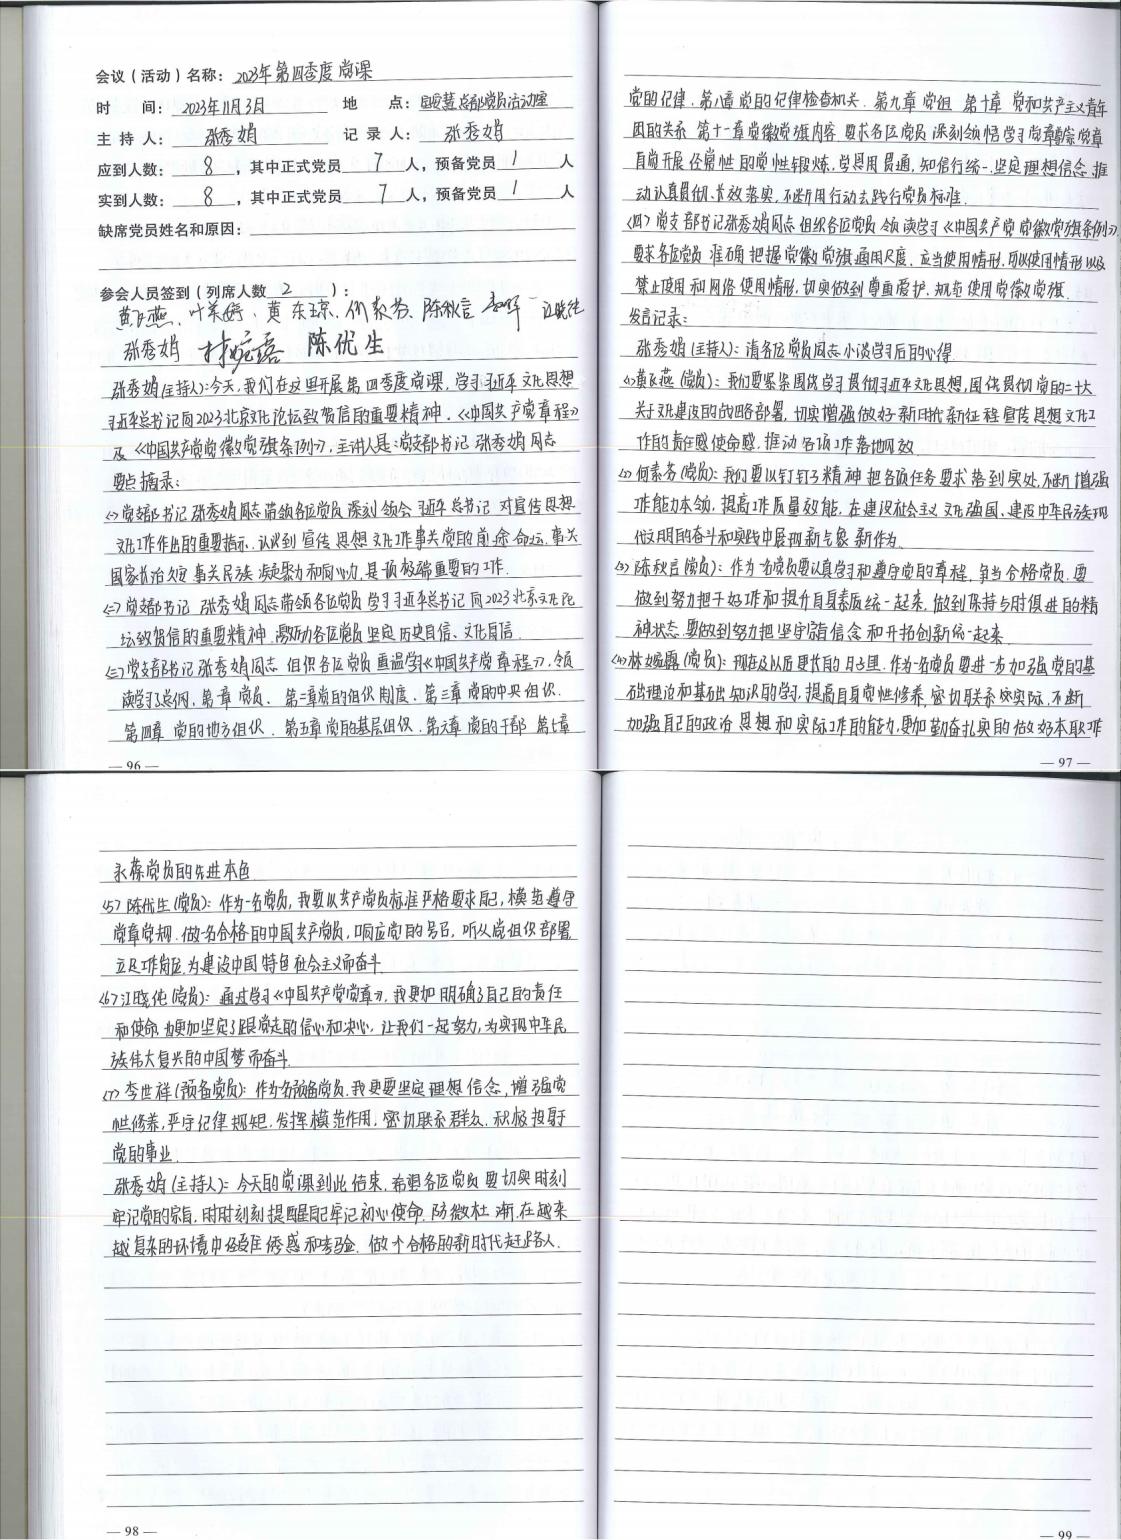 会议(活动)名称: 2023年第四季度党课
时 间: 2023年11月3日 地 点: 总部党员活动室
主 持 人: 张秀娟 记 录 人: 张秀娟
应到人数: 8 ,其中正式党员 7 人,预备党员 1 人
实到人数: 8 ,其中正式党员 7 人,预备党员 1 人
缺席党员姓名和原因:
参会人员签到(列席人数 2 ):
黄飞燕、叶 、黄东琼、何素芬、陈秋言 江晓纯
张秀娟 林婉露 陈优生
张秀娟(主持人):今天,我们在这里开展第四季度党课,学习习近平文化思想
习近平总书记向2023北京文化论坛致贺信的重要精神.《中国共产党章程》
及《中国共产党党徽党旗条例》,主讲人是:党支部书记张秀娟同志
要点摘录:
(一)党支部书记张秀娟同志带领各位党员深刻领会习近平总书记对宣传思想
文化工作作出的重要指示.认识到宣传思想文化工作事关党的前途命运,事关
国家长治久安事关民族凝聚力和向心力,是一项极端重要的工作.
(二)党支部书记张秀娟同志带领各位党员学习习近平总书记向2023北京文化论
坛致贺信的重要精神.激励各位党员坚定历史自信、文化自信
(三)党支部书记张秀娟同志组织各位党员重温学习《中国共产党章程》,领
读学习总纲、第一章党员、第二章党的组织制度、第三章党的中央组织.
第四章党的地方组织.第五章党的基层组织.第六章党的干部 第七章
— 96 —
党的纪律.第八章党的纪律检查机关.第九章党组 第十章 党和共产主义青年
团的关系 第十一章党徽党旗内容.要求各位党员深刻领悟学习党章 党章
自觉开展经常性的党性锻炼,学思用贯通,知信行统一.坚定理想信念,推
动认真贯彻、长效落实,不断用行动去践行党员标准.
(四)党支部书记张秀娟同志组织各位党员领读学习《中国共产党党徽党旗条例》.
要求各位党员准确把握党徽党旗通用尺度、应当使用情形、可以使用情形以及
禁止使用和网络使用情形,切实做到尊重爱护、规范使用党徽党旗.
发言记录:
张秀娟(主持人):请各位党员同志小谈学习后的心得.
(1)黄飞燕(党员):我们要紧紧围绕学习贯彻习近平文化思想,围绕贯彻党的二十大
关于文化建设的战略部署,切实增强做好新时代新征程宣传思想文化工
作的责任感使命感.推动各项工作落地见效
(2)何素芬(党员):我们要以钉钉子精神把各项任务要求落到实处,不断增强
工作能力本领,提高工作质量效能,在建设社会主义文化强国、建设中华民族现
代文明的奋斗和实践中展现新气象新作为.
(3)陈秋言(党员):作为一名党员要认真学习和遵守党的章程,争当合格党员.要
做到努力把干好工作和提升自身素质统一起来,做到保持与时俱进的精
神状态.要做到努力把坚守 信念和开拓创新统一起来.
(4)林婉露(党员):现在及以后更长的日子里.作为一名党员要进一步加强党的基
础理论和基础知识的学习,提高自身党性修养,密切联系 实际,不断
加强自己的政治思想和实际工作的能力,更加勤奋扎实的做好本职工作
— 97 —
永葆党员的先进本色
(5)陈优生(党员):作为一名党员,我要以共产党员标准严格要求自己,模范遵守
党章党规.做一名合格的中国共产党员,响应党的号召,听从党组织部署
立足工作岗位,为建设中国特色社会主义而奋斗
(6)江晓纯(党员):通过学习《中国共产党党章》,我更加明确了自己的责任
和使命.也更加坚定了跟党走的信心和决心.让我们一起努力,为实现中华民
族伟大复兴的中国梦而奋斗.
(7)李世祥(预备党员):作为一名预备党员.我更要坚定理想信念,增强党
性修养,严守纪律规矩.发挥模范作用,密切联系群众.积极投身于
党的事业.
张秀娟(主持人):今天的党课到此结束,希望各位党员要切实时刻
牢记党的宗旨,时时刻刻提醒自己牢记初心使命.防微杜渐,在越来
越复杂的环境中经受住诱惑和考验.做一个合格的新时代赶路人.
— 98 —
— 99 —